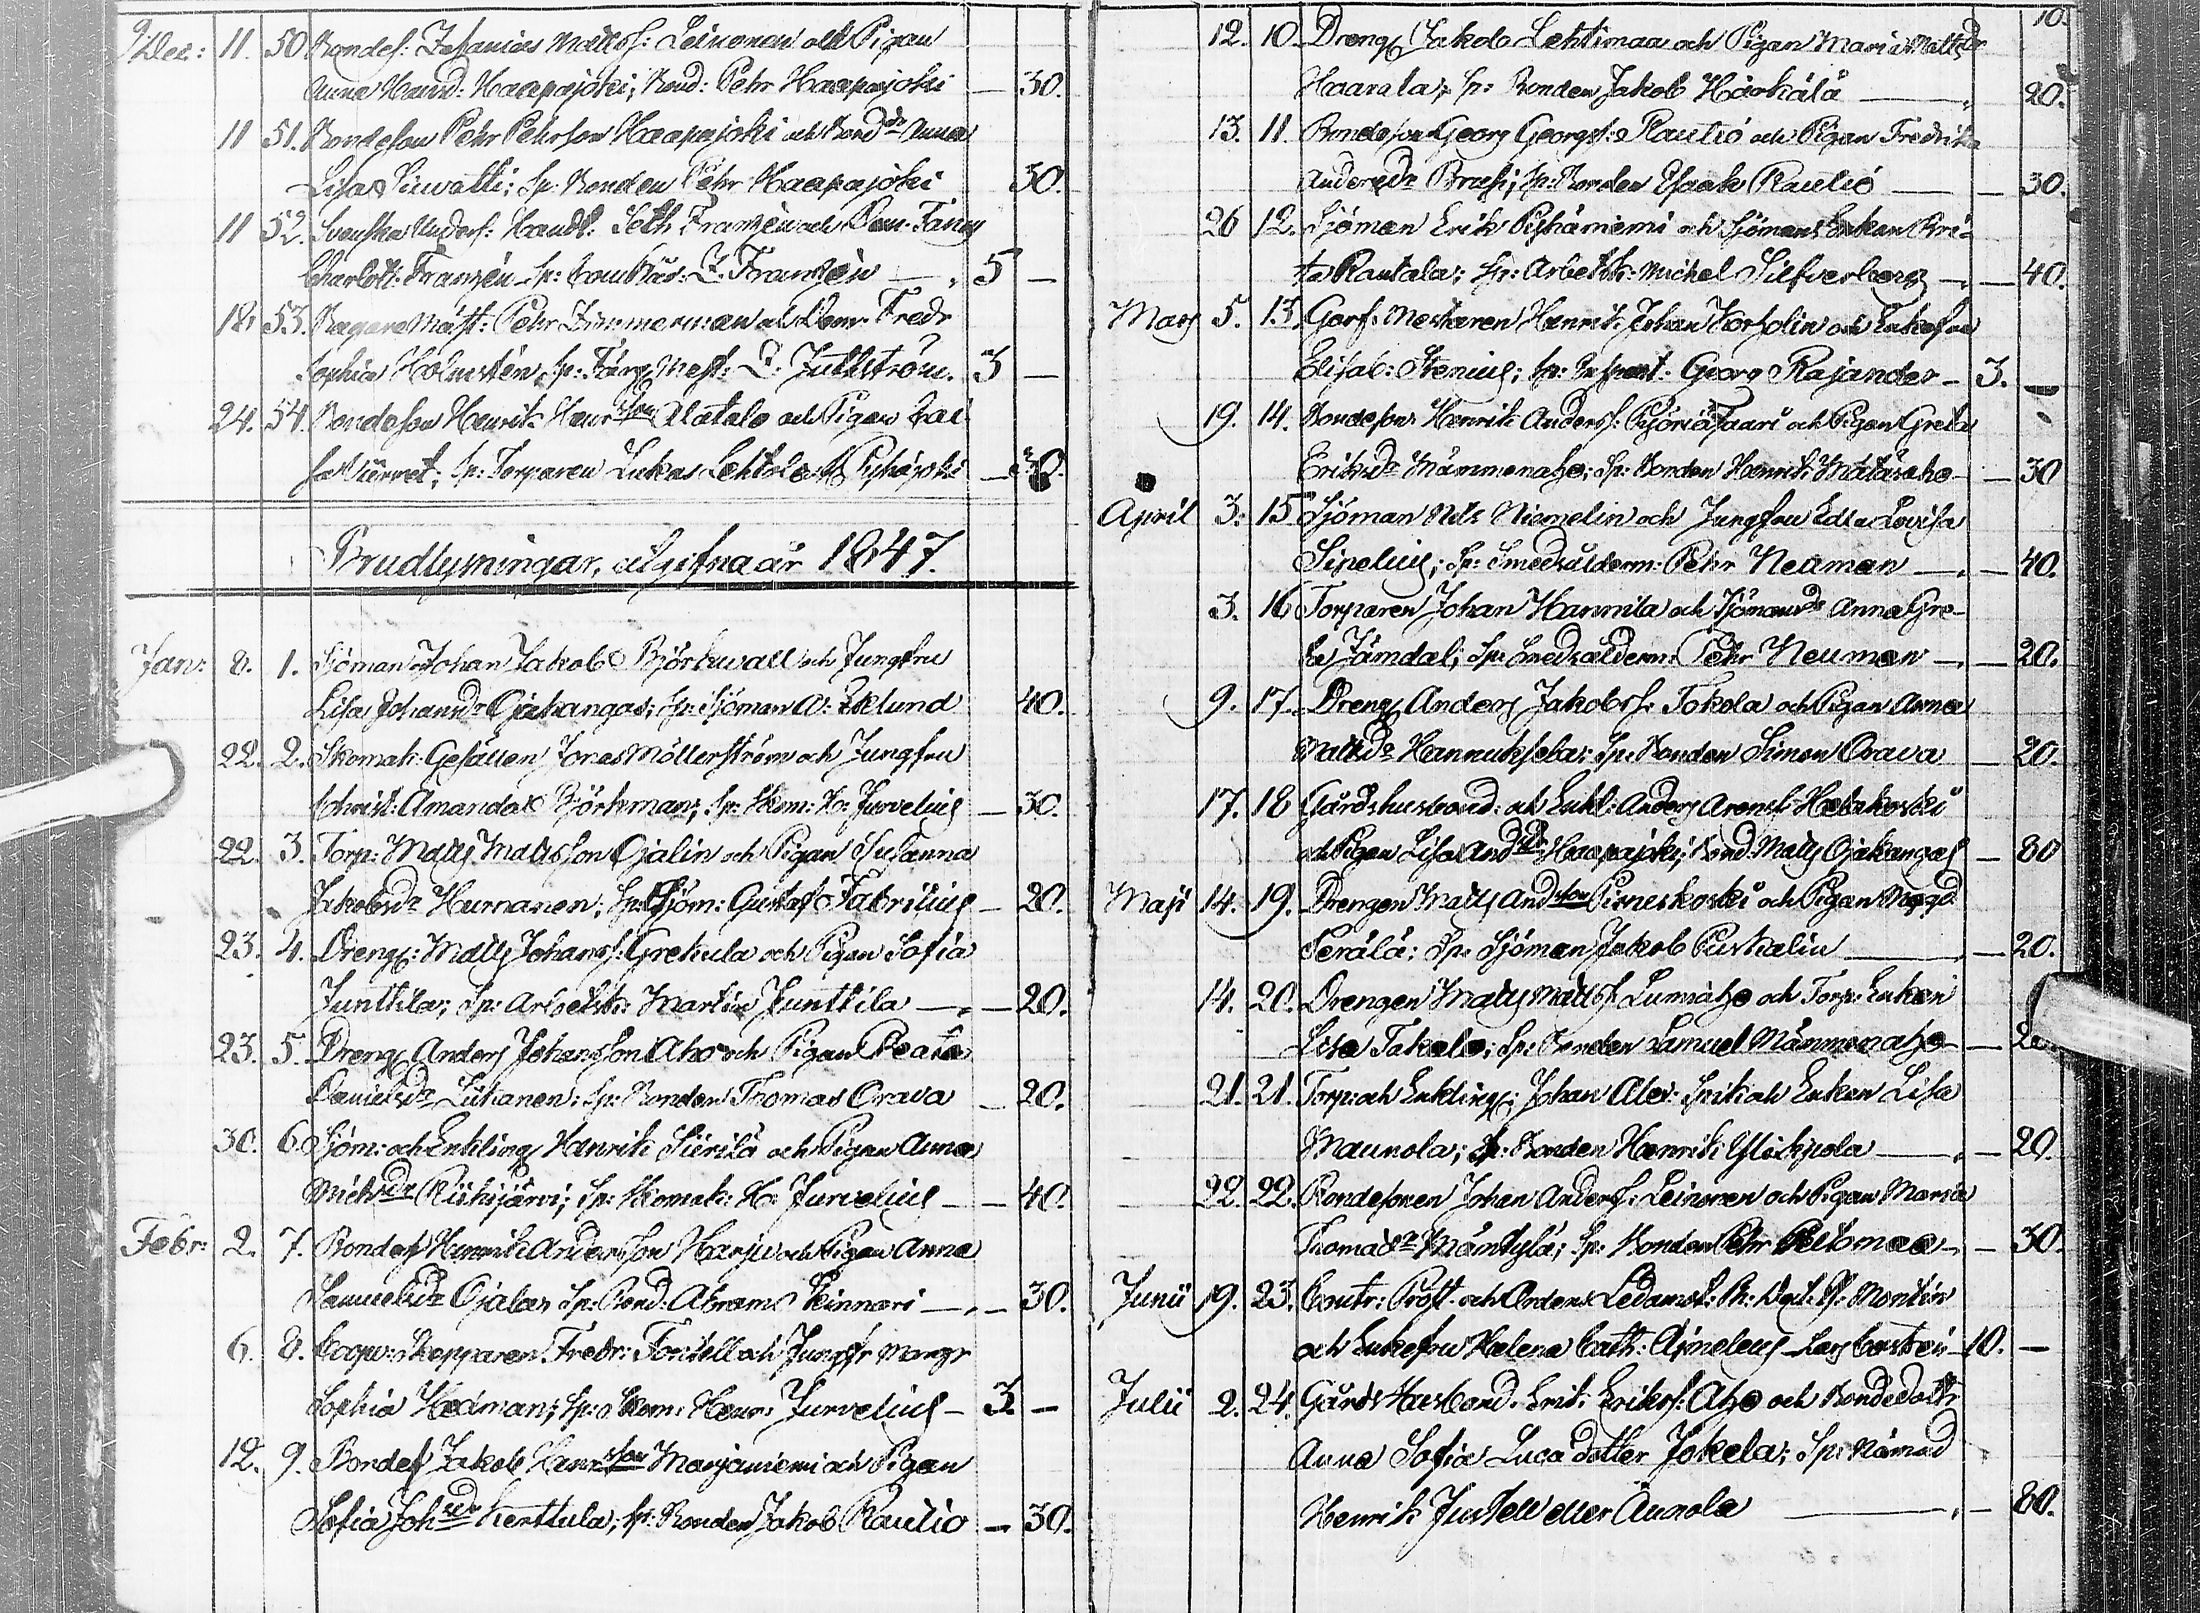 Dec: 11. 50 Bondes: Zakarias Mattss: Leinonen och Pigan
Anna Hansd: Haapajoki; Bond: Pehr Haapajoki — 30.
11 51. Bondeson Pehr Pehrson Haapajoki och Bonddr Anna
Lisa Siirvatti; Sp: Bonden Pehr Haapajoki 30.
11 52. Svenska Unders: Handl: Seth Franzén och Dem. Fanny
Charlott: Franzén Sp: Z. Franzén — 5 —
18. 53. Garfvare Mäst: Pehr Zimmerman och Dem. Fredr
Sophia Holmstén Sp: Färg Mest: Z. Juthström. 3 —
24. 54. Bondeson Henrik Henrson Alatalo och Pigan Kai
sa Sp: Torparen Lukas Lehtola Pyhäjoki — 30.
Brudlysningar, utgifna år 1847.
Jan: 8. 1. Sjöman Johan Jakob Björkwall och Jungfru
Lisa Johansdr Ojakangas; Sp: Sjöman A: Eklund 40.
22. 2. Skomak: Gesällen Jonas Möllerström och Jungfru
Christ: Amanda Björkman; Sp: Skom: H: Jurvelius — 30.
22. 3. Torp: Matts Mattsson Ojalin och Pigan Susanna
Jakobsdr Humanen; Sp: Sjöm: Gustaf Fabritius — 20.
23. 4. Dreng: Matts Johanss: Grekula och Pigan Sofia
Junttila; Sp: Arbetsk: Martin Junttila — 20.
23. 5. Dreng Anders Johansson Aho och Pigan Beata
Danielsdr Liikanen; Sp: Bonden Thomas Orava — 20.
30. 6. Sjöm: och Enkling Henrik Siirilä och Pigan Anna
Mickdr Riskijärvi; Sp: Skomak: H: Jurvelius — 40.
Febr: 2. 7. Bondes Henrik Andersson Harju och Pigan Anna
Samuelsdr Ojala; Sp: Bond: Abram Kinnari — 30.
6. 8. Coopv: Skepparen Fredr: Forssell och Jungfr Margr
Sophia Hedman; Sp: Skom: Henr: Jurvelius — 3. —
12. 9. Bondes Jakob Henrson Marjaniemi och Pigan
Sofia Johsdr Kerttula; Sp: Bonden Jakob Rautio — 30.
10.
12. 10. Dreng Jakob Lehtimaa och Pigan Maria Mattsdr
Haarala; Sp: Bonden Jakob Härkälä — 20.
13. 11. Bondeson Georg Georgs: Rautio och Pigan Fredrika
Andersdr Brusi; Sp: Bonden Esaak Rautio — 30.
26 12. Sjöman Erik Pyhäniemi och Sjömans Enkan Bri-
ta Rautala; Sp: Arbetsk: Michel Silfverberg — 40.
Mars 5. 13. Garf: Mestaren Henrik Johan Korsolin och Enkefru
Elisab: Stenius; Sp: Inspekt: Georg Rajander — 3. —
19. 14. Bondeson Henrik Anderss: Pyöriäsaari och Pigan Greta
Eriksdr Mämmenaho; Sp: Bonden Henrik Mätäsaho — 30
April 3. 15 Sjöman Nils Niemelin och Jungfru Edla Lovisa
Sipelius; Sp: Smedsålderm: Pehr Neuman — 40.
3. 16 Torparen Johan Hannila och Sjömansdr Anna Gre-
ta Jämdal; Sp: Smedsålderm: Pehr Neuman — 20.
9. 17. Dreng Anders Jakobss: Tokola och Pigan Anna
Mattsdr Hannuksela; Sp: Bonden Simon Orava — 20.
17. 18 Gårdshusbond: och Enkl: Anders Arons: Halakoski
och Pigan Lisa Andsdr Haapajoki; Bond: Matts Ojakangas — 80
Maji 14. 19. Drengen Matts Andson Pirneskoski och Pigan Magd
Perälä; Sp: Sjöman Jakob Puskalin — 20.
14. 20. Drengen Matts Mattss: Lumiaho och Torp: Enkan
Lisa Takalo; Sp: Bonden Samuel Mämmenaho — 20
21. 21. Torp: och Enkling: Johan Alex: och Enkan Lisa
Maunola; Sp: Bonden Henrik Ylikjuola — 20.
22. 22. Bondesonen Johan Anders: Leinonen och Pigan Maria
Thomasdr Mäntylä; Sp: Bonden Pehr Peltomaa — 30.
Junii 19. 23. Contr: Prost och Ordens Ledamot: Montin
och Enkefru Helena Cath: Ajmelæus — 10. —
Julii 2. 24. Gårds Husbond. Erik Erikss: Aho och Bondedottr
Anna Sofia Luca dotter Jokela; Sp: Nämnd
Henrik Juntell eller Aunola — 80.